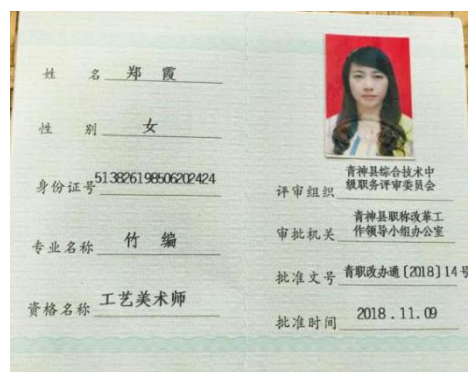 姓名 郑霞
性别 女
身份证号 513826198506202424
专业名称 竹编
资格名称 工艺美术师
青神县综合技术中
评审组织 级职务评审委员会
青神县职称改革工
审批机关 作领导小组办公室
批准文号 青职改办通〔2018〕14号
批准时间 2018.11.09